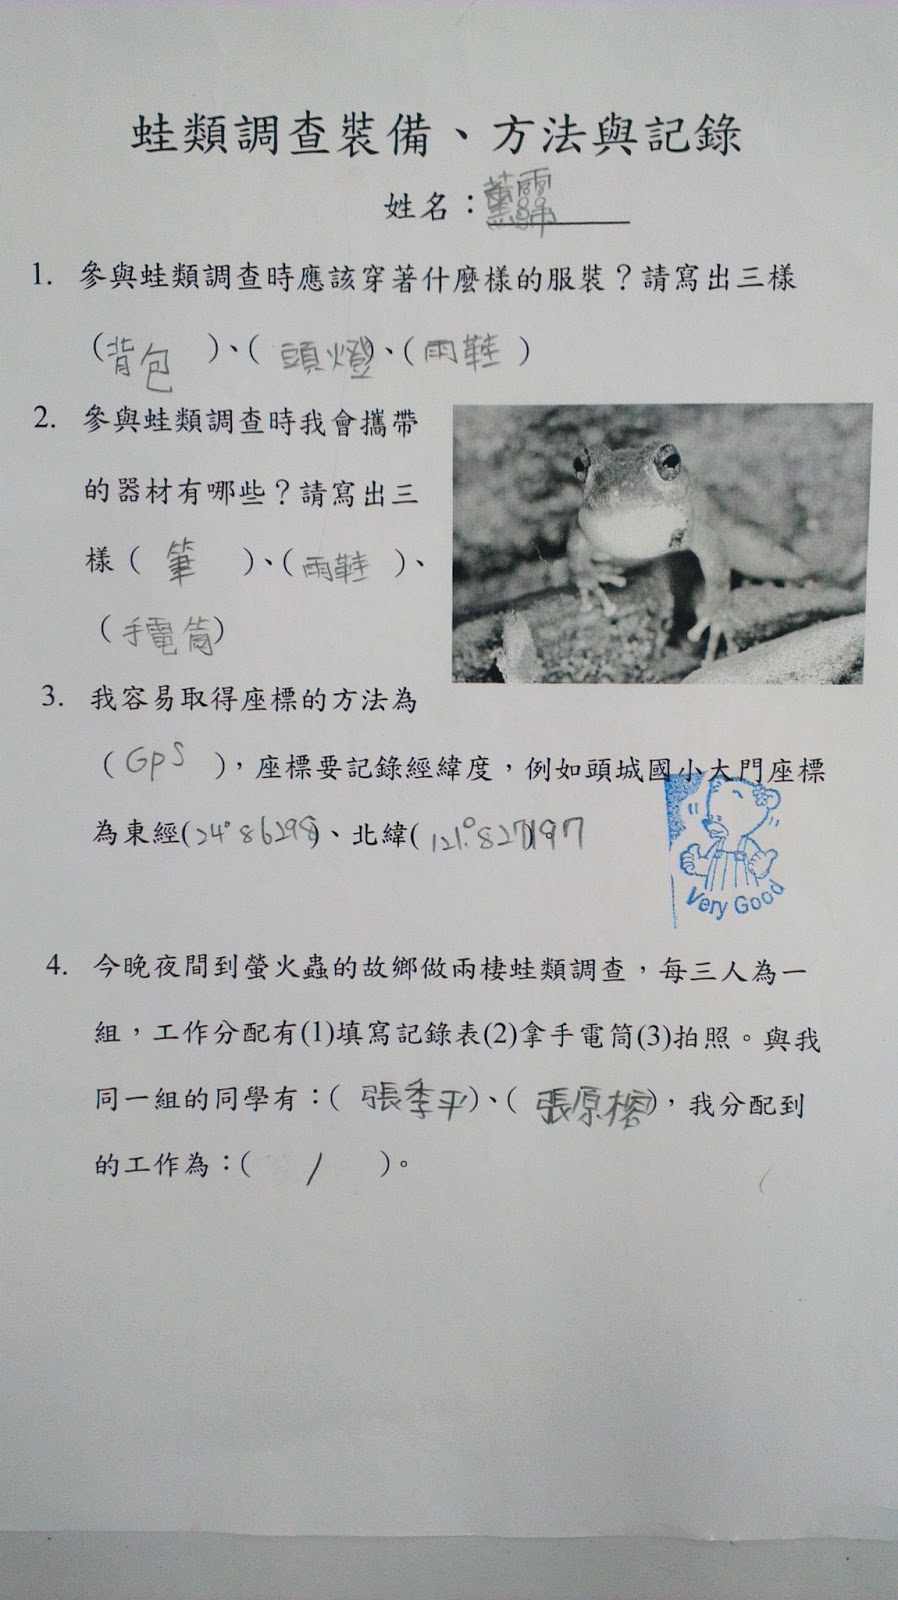 蛙類調查裝備、方法與記錄
姓名：
1. 參與蛙類調查時應該穿著什麼樣的服裝？請寫出三樣
(背包)、(頭燈)、(雨鞋)
2. 參與蛙類調查時我會攜帶
的器材有哪些？請寫出三
樣(筆)、(雨鞋)、
(手電筒)
3. 我容易取得座標的方法為
(GPS)，座標要記錄經緯度，例如頭城國小大門座標
為東經(24°86298)、北緯(121.°827197
Very Good
4. 今晚夜間到螢火蟲的故鄉做兩棲蛙類調查，每三人為一
組，工作分配有(1)填寫記錄表(2)拿手電筒(3)拍照。與我
同一組的同學有：(張季平)、(張原榕)，我分配到
的工作為：( / )。